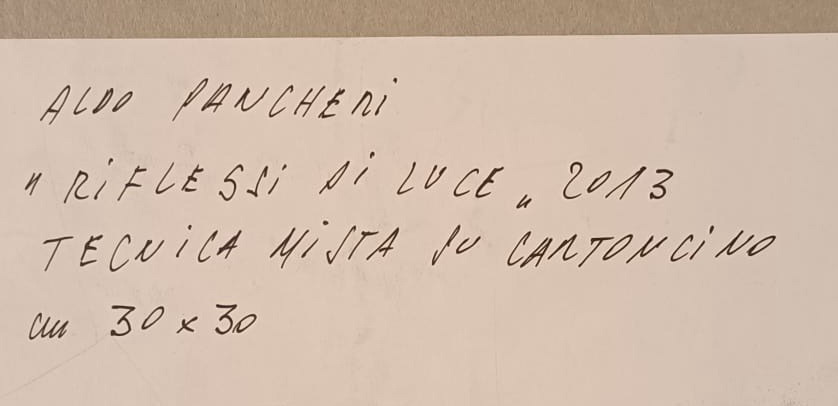 ALDO PANCHERI
"RIFLESSI DI LUCE" 2013
TECNICA MISTA SU CARTONCINO
cm 30 x 30